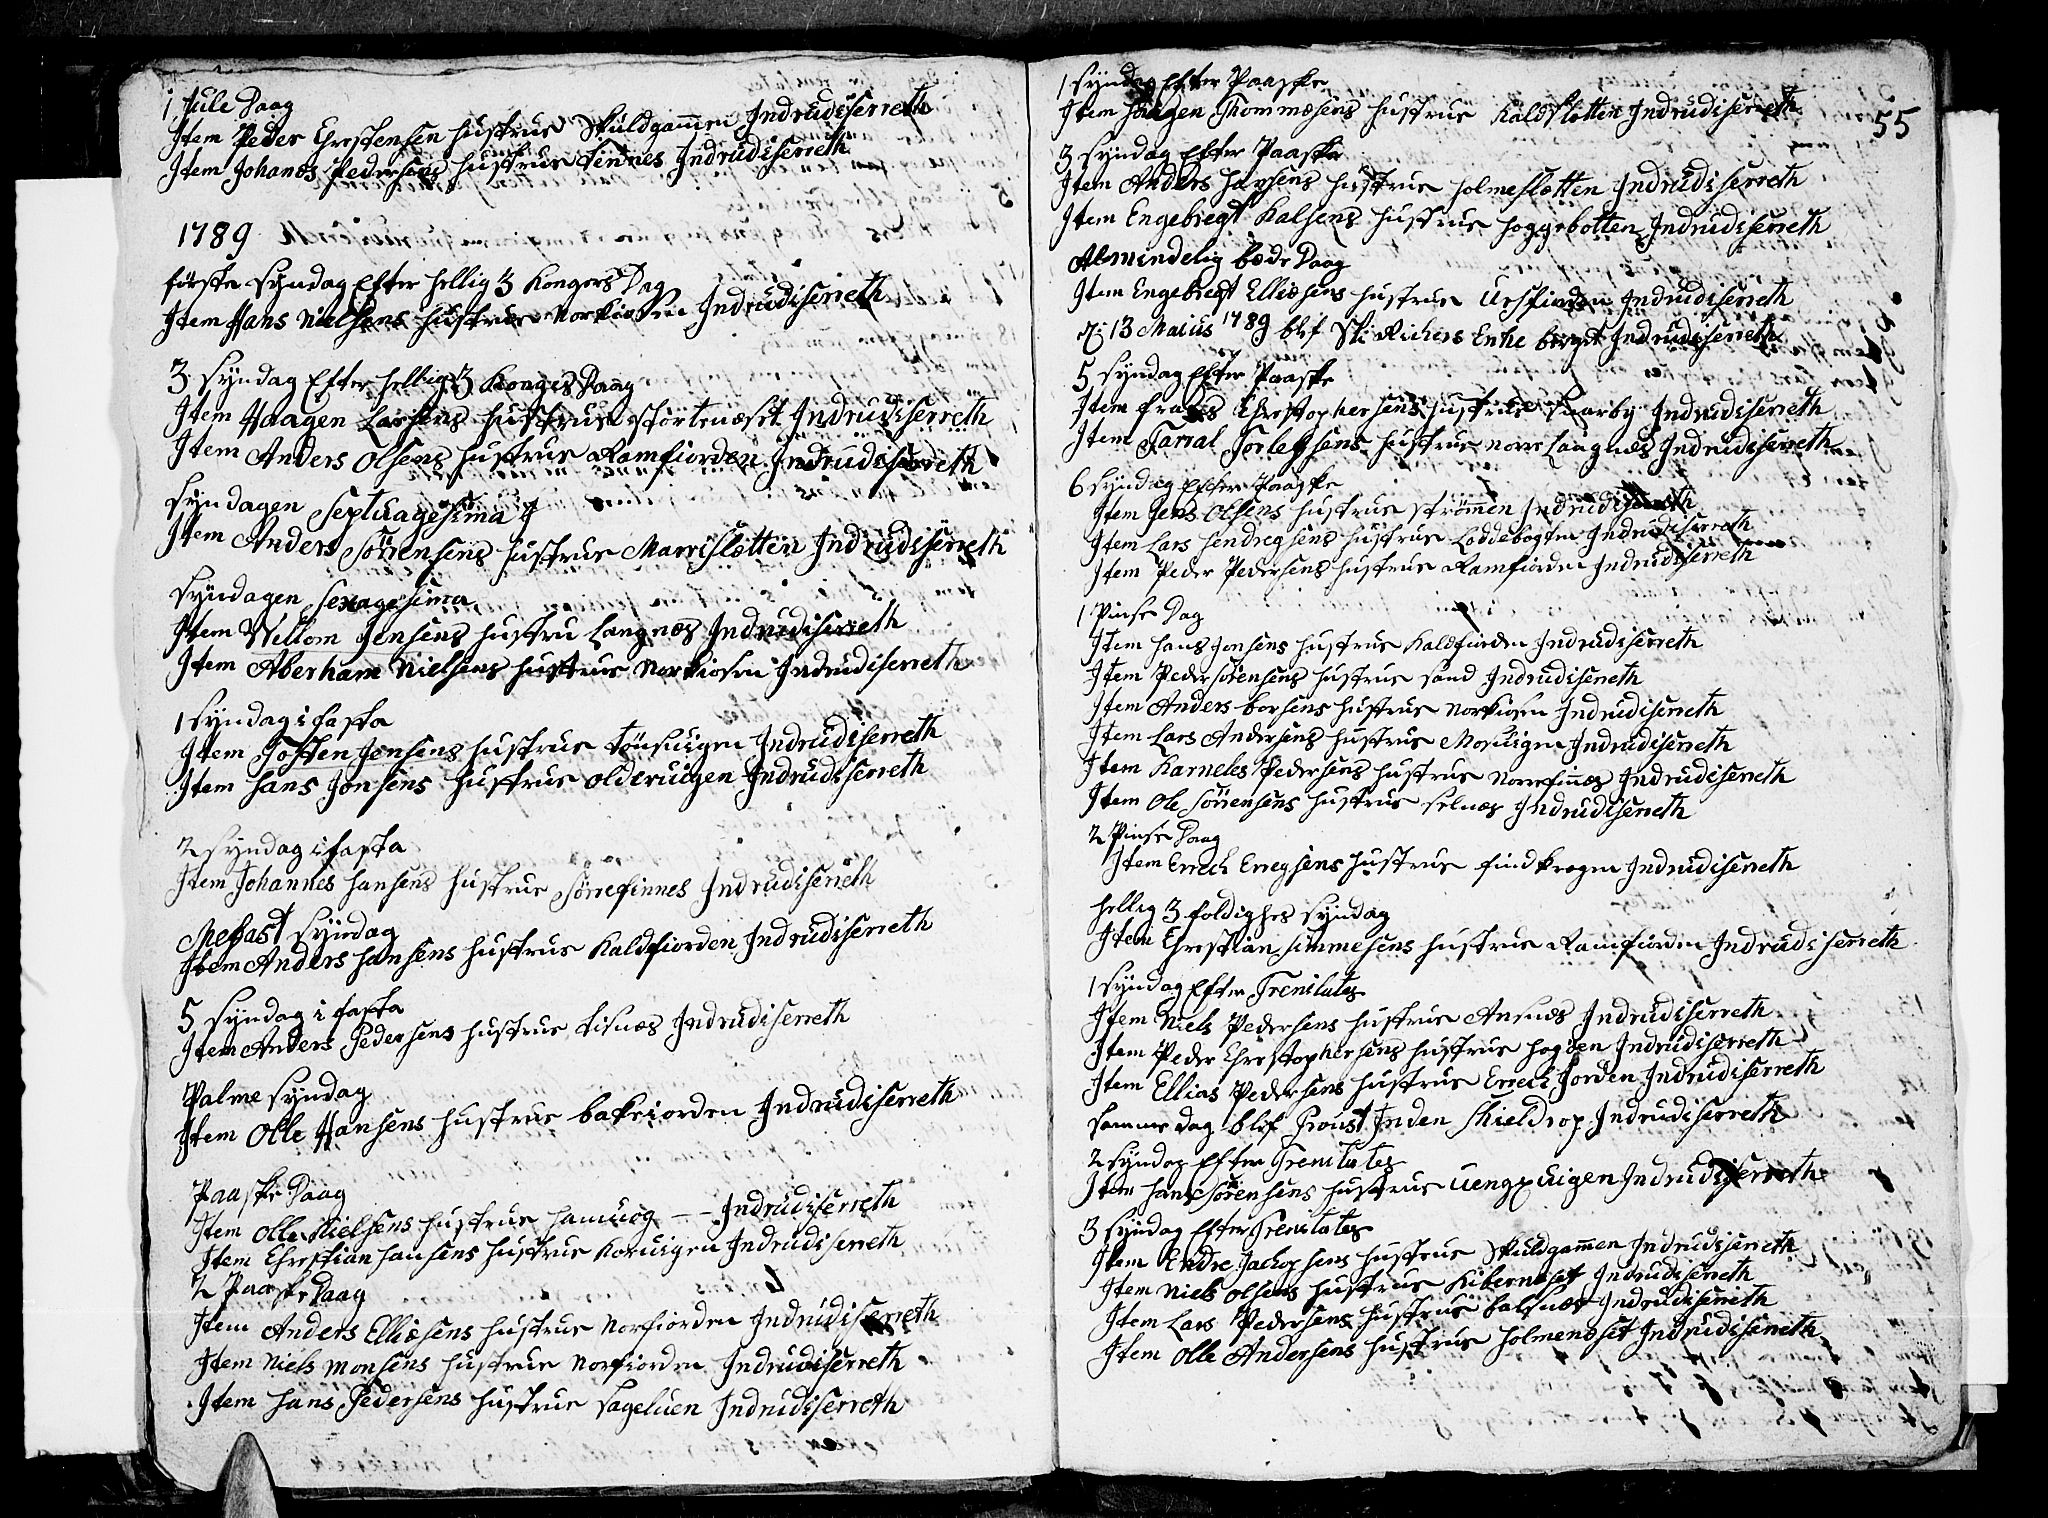 1 Jule Daag
Item Peder Chrestensen hustrue Skuldgammen Indrudiserreth
Item Johanes Pedersens hustrue tennes Indrudiserreth
1789
förste syndag Efter hellig 3 Kongers Dag
Item Hans Nielsens hustrue Norkiosen Indrudiserreth
3 syndag Efter hellig 3 Konges Daag
Item Haagen Larsens hustrue stortenæset Indrudiserreth
Item Anders Olsens hustrue Ramfiorden Indrudiserreth
syndagen Septuagesima
Item Anders Sörensens hustrue Marrislætten Indrudiserreth
syndagen sexagesima
Item Wellom Jensens hustru Langnæs Indrudiserreth
Item Aberham Nielsens hustrue Norkiosen Indrudiserreth
1 syndag i fasta
Item Tosten Jensens hustrue tönsuigen Indrudiserreth
Item hans Jonsens hustrue olderuigen Indrudiserreth
2 syndag i fasta
Item Johannes hansens hustrue Sörrefinnes Indrudiserreth
Mefast syndag
Item Anders hansens hustrue Kaldfiorden Indrudiserreth
5 syndag i fasta
Item Anders Pedersens hustrue tisnæs Indrudiserreth
Palme syndag
Item Olle Hansens hustrue bakeiorden Indrudiserreth
Paaske Daag
Item Olle Nielsens hustrue hamuog -- Indrudiserreth
Item Chrestian hansens hustrue Koruigen Indrudiserreth
2 Paaske Daag
Item Anders Elliæsens hustrue Norfiorden Indrudiserreth
Item Niels monsens hustrue Norfiorden Indrudiserreth
Item hans Pedersens hustrue sageluen Indrudiserreth
55
1 syndag Efter Paaske
Item Haagen Thommæsens hustrue Kaldslotten Indrudiserreth
3 syndag Efter Paaske
Item Anders hansens hustrue holmeslætten Indrudiserreth
Item Engebregt Kalsens hustrue hoggebotten Indrudiserreth
Almindelig bede Daag
Item Engebregt Elliæsens hustrue Ursfiorden Indrudiserreth
13 Maius 1789 blef Richers Enke berget Indrudiserreth
5 syndag Efter Paaske
Item frans Chrestophersens hustrue skarby Indrudiserreth
Item Tarral Torlefsens hustrue norre Laagnes Indrudiserreth
6 syndag Efter Paaske
Item Jens Olsens hustrue strömen Indrudiserreth
Item Lars hendregsens hustrue Loddebogten Indrudiserreth
Item Peder Pedersens hustrue Ramfiorden Indrudiserreth
1 Pinse Dag
Item hans Jonsens hustrue Kaldfiorden Indrudiserreth
Item Peder Sörensens hustrue sand Indrudiserreth
Item Anders borsens hustrue Norkiosen Indrudiserreth
Item Lars Andersens hustrue Moruigen Indrudiserreth
Item Karneles Pedersens hustrue Norrefinnes Indrudiserreth
Item Ole Sörrensens hustrue selnæs Indrudiserreth
2 Pinse Daag
Item Errech Erregsens hustrue findkrogen Indrudiserreth
hellig 3 foldighes syndag
Item Chrestian simmesens hustrue Ramfiorden Indrudiserreth
1 syndag Efter Trenitates
Item Niels Pedersens hustrue Ansnæs Indrudiserreth
Item Peder Chrestophersens hustrue hogden Indrudiserreth
Item Ellias Pedersens hustrue Errech Jorden Indrudiserreth
samme dag blef Proust Inden Skieldrop Indrudiserreth
2 syndag Efter Trenitates
Item hans Sörensens hustrue uengxuigen Indrudiserreth
3 syndag Efter Trenitates
Item Endre Jachopsens hustrue Skuldgammen Indrudiserreth
Item Niels Olsens hustrue Kibernæset Indrudiserreth
Item Lars Pedersens hustrue balsnæs Indrudiserreth
Item Olle Andersens hustrue holmenæset Indrudiserreth